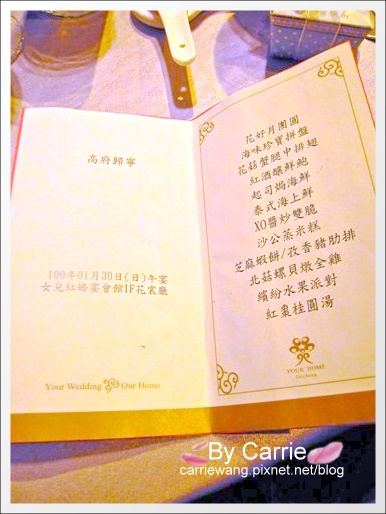 高府歸寧
100年01月30日(日)午宴
女兒紅婚宴會館1F花裳廳
Your Wedding Our Home
花好月團圓
海味珍寶拼盤
花菇蟹腿中排翅
紅酒釀鮮鮑
起司焗海鮮
泰式海上鮮
XO醬炒雙脆
沙公蒸米糕
芝麻蝦餅/孜香豬肋排
北菇螺貝燉全雞
繽紛水果派對
紅棗桂圓湯
YOUR HOME
By Carrie
carriewang.pixnet.net/blog